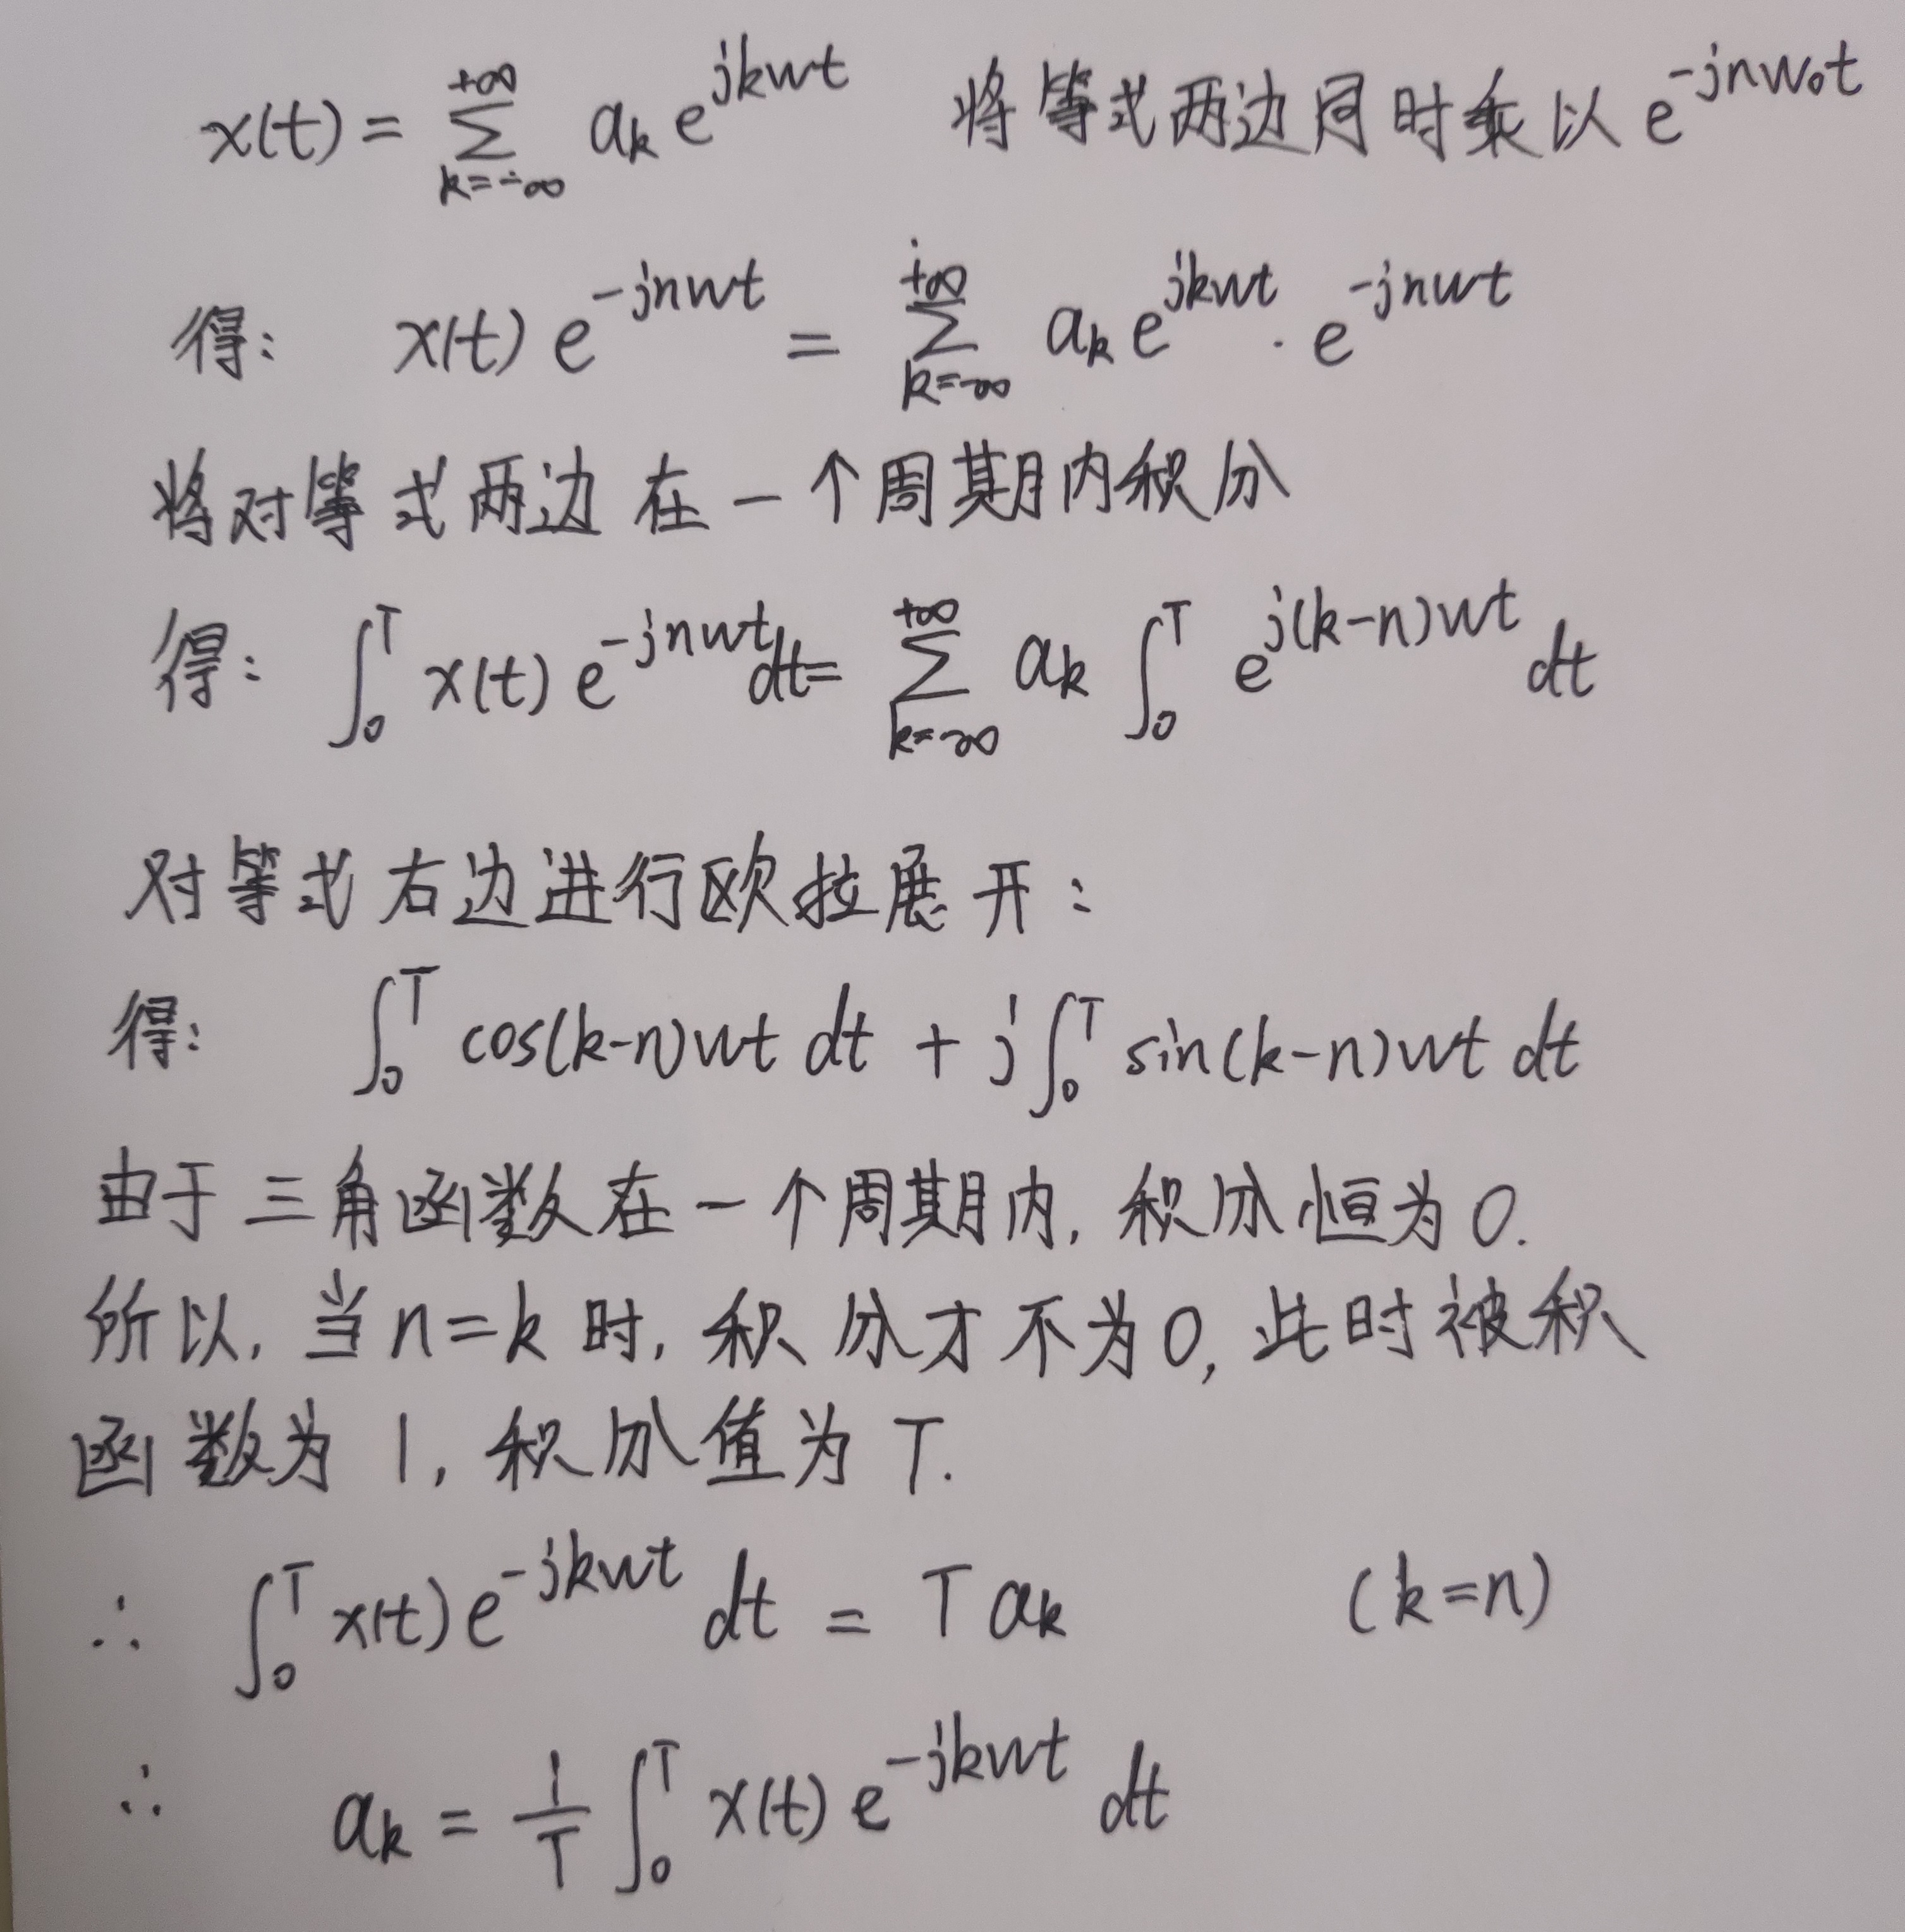 x(t) = \sum_{k=-∞}^{+∞} a_k e^{jkwt} 将等式两边同时乘以 e^{-jnw_0t}
得: x(t) e^{-jnwt} = \sum_{k=-∞}^{+∞} a_k e^{jkwt} · e^{-jnwt}
将对等式两边在一个周期内积分
得: \int_0^T x(t) e^{-jnwt} dt = \sum_{k=-∞}^{+∞} a_k \int_0^T e^{j(k-n)wt} dt
对等式右边进行欧拉展开:
得: \int_0^T cos(k-n)wt dt + j\int_0^T sin(k-n)wt dt
由于三角函数在一个周期内, 积分恒为0.
所以, 当n=k时, 积分才不为0, 此时被积
函数为1, 积分值为T.
∴ \int_0^T x(t) e^{-jkwt} dt = T a_k (k=n)
∴ a_k = \frac{1}{T} \int_0^T x(t) e^{-jkwt} dt